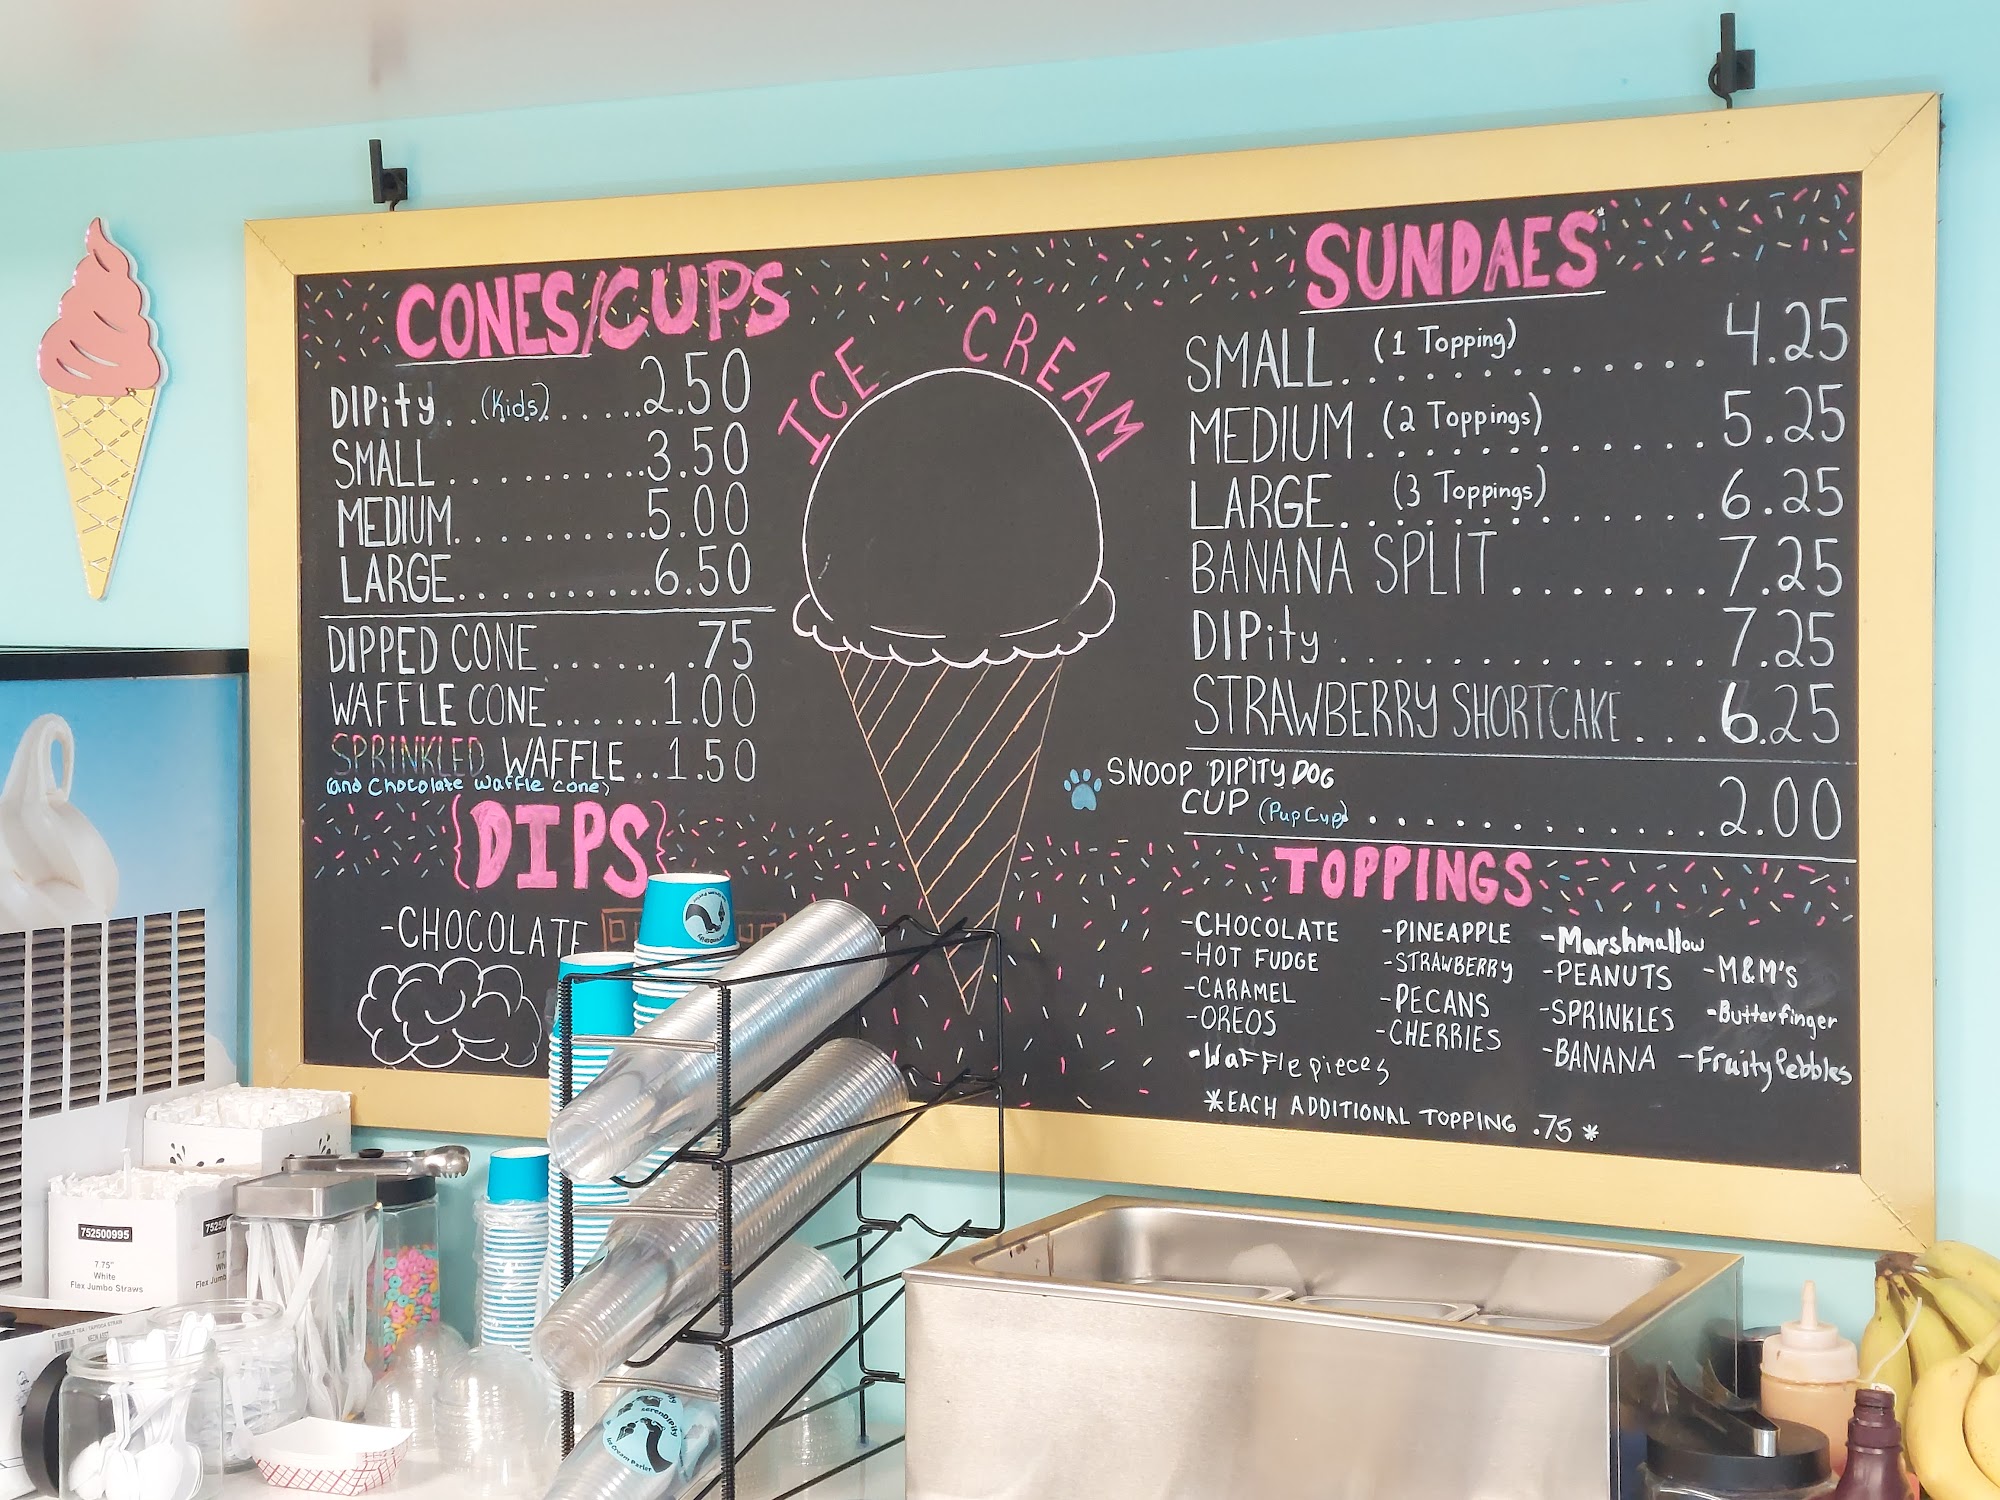 CONES/CUPS
DIPity..(Kids)......2.50
SMALL..........3.50
MEDIUM..........5.00
LARGE..........6.50
DIPPED CONE.......75
WAFFLE CONE......1.00
SPRINKLED WAFFLE..1.50
(and Chocolate waffle cone)
{DIPS}
-CHOCOLATE
ICE CREAM
SUNDAES*
SMALL (1 Topping).............4.25
MEDIUM (2 Toppings).............5.25
LARGE (3 Toppings).............6.25
BANANA SPLIT.......7.25
DIPity.............7.25
STRAWBERRY SHORTCAKE...6.25
SNOOP DIPITY DOG
CUP (Pup Cup).............2.00
TOPPINGS
-CHOCOLATE
-HOT FUDGE
-CARAMEL
-OREOS
-Waffle pieces
-PINEAPPLE
-STRAWBERRY
-PECANS
-CHERRIES
-Marshmallow
-PEANUTS
-SPRINKLES
-BANANA
-M&M'S
-Butterfinger
-Fruity Pebbles
*EACH ADDITIONAL TOPPING .75*
752500995
7.75"
White
Flex Jumbo Straws
7525
7.7
Wh
Flex Jumb
serenDIPity
Ice Cream Parlor